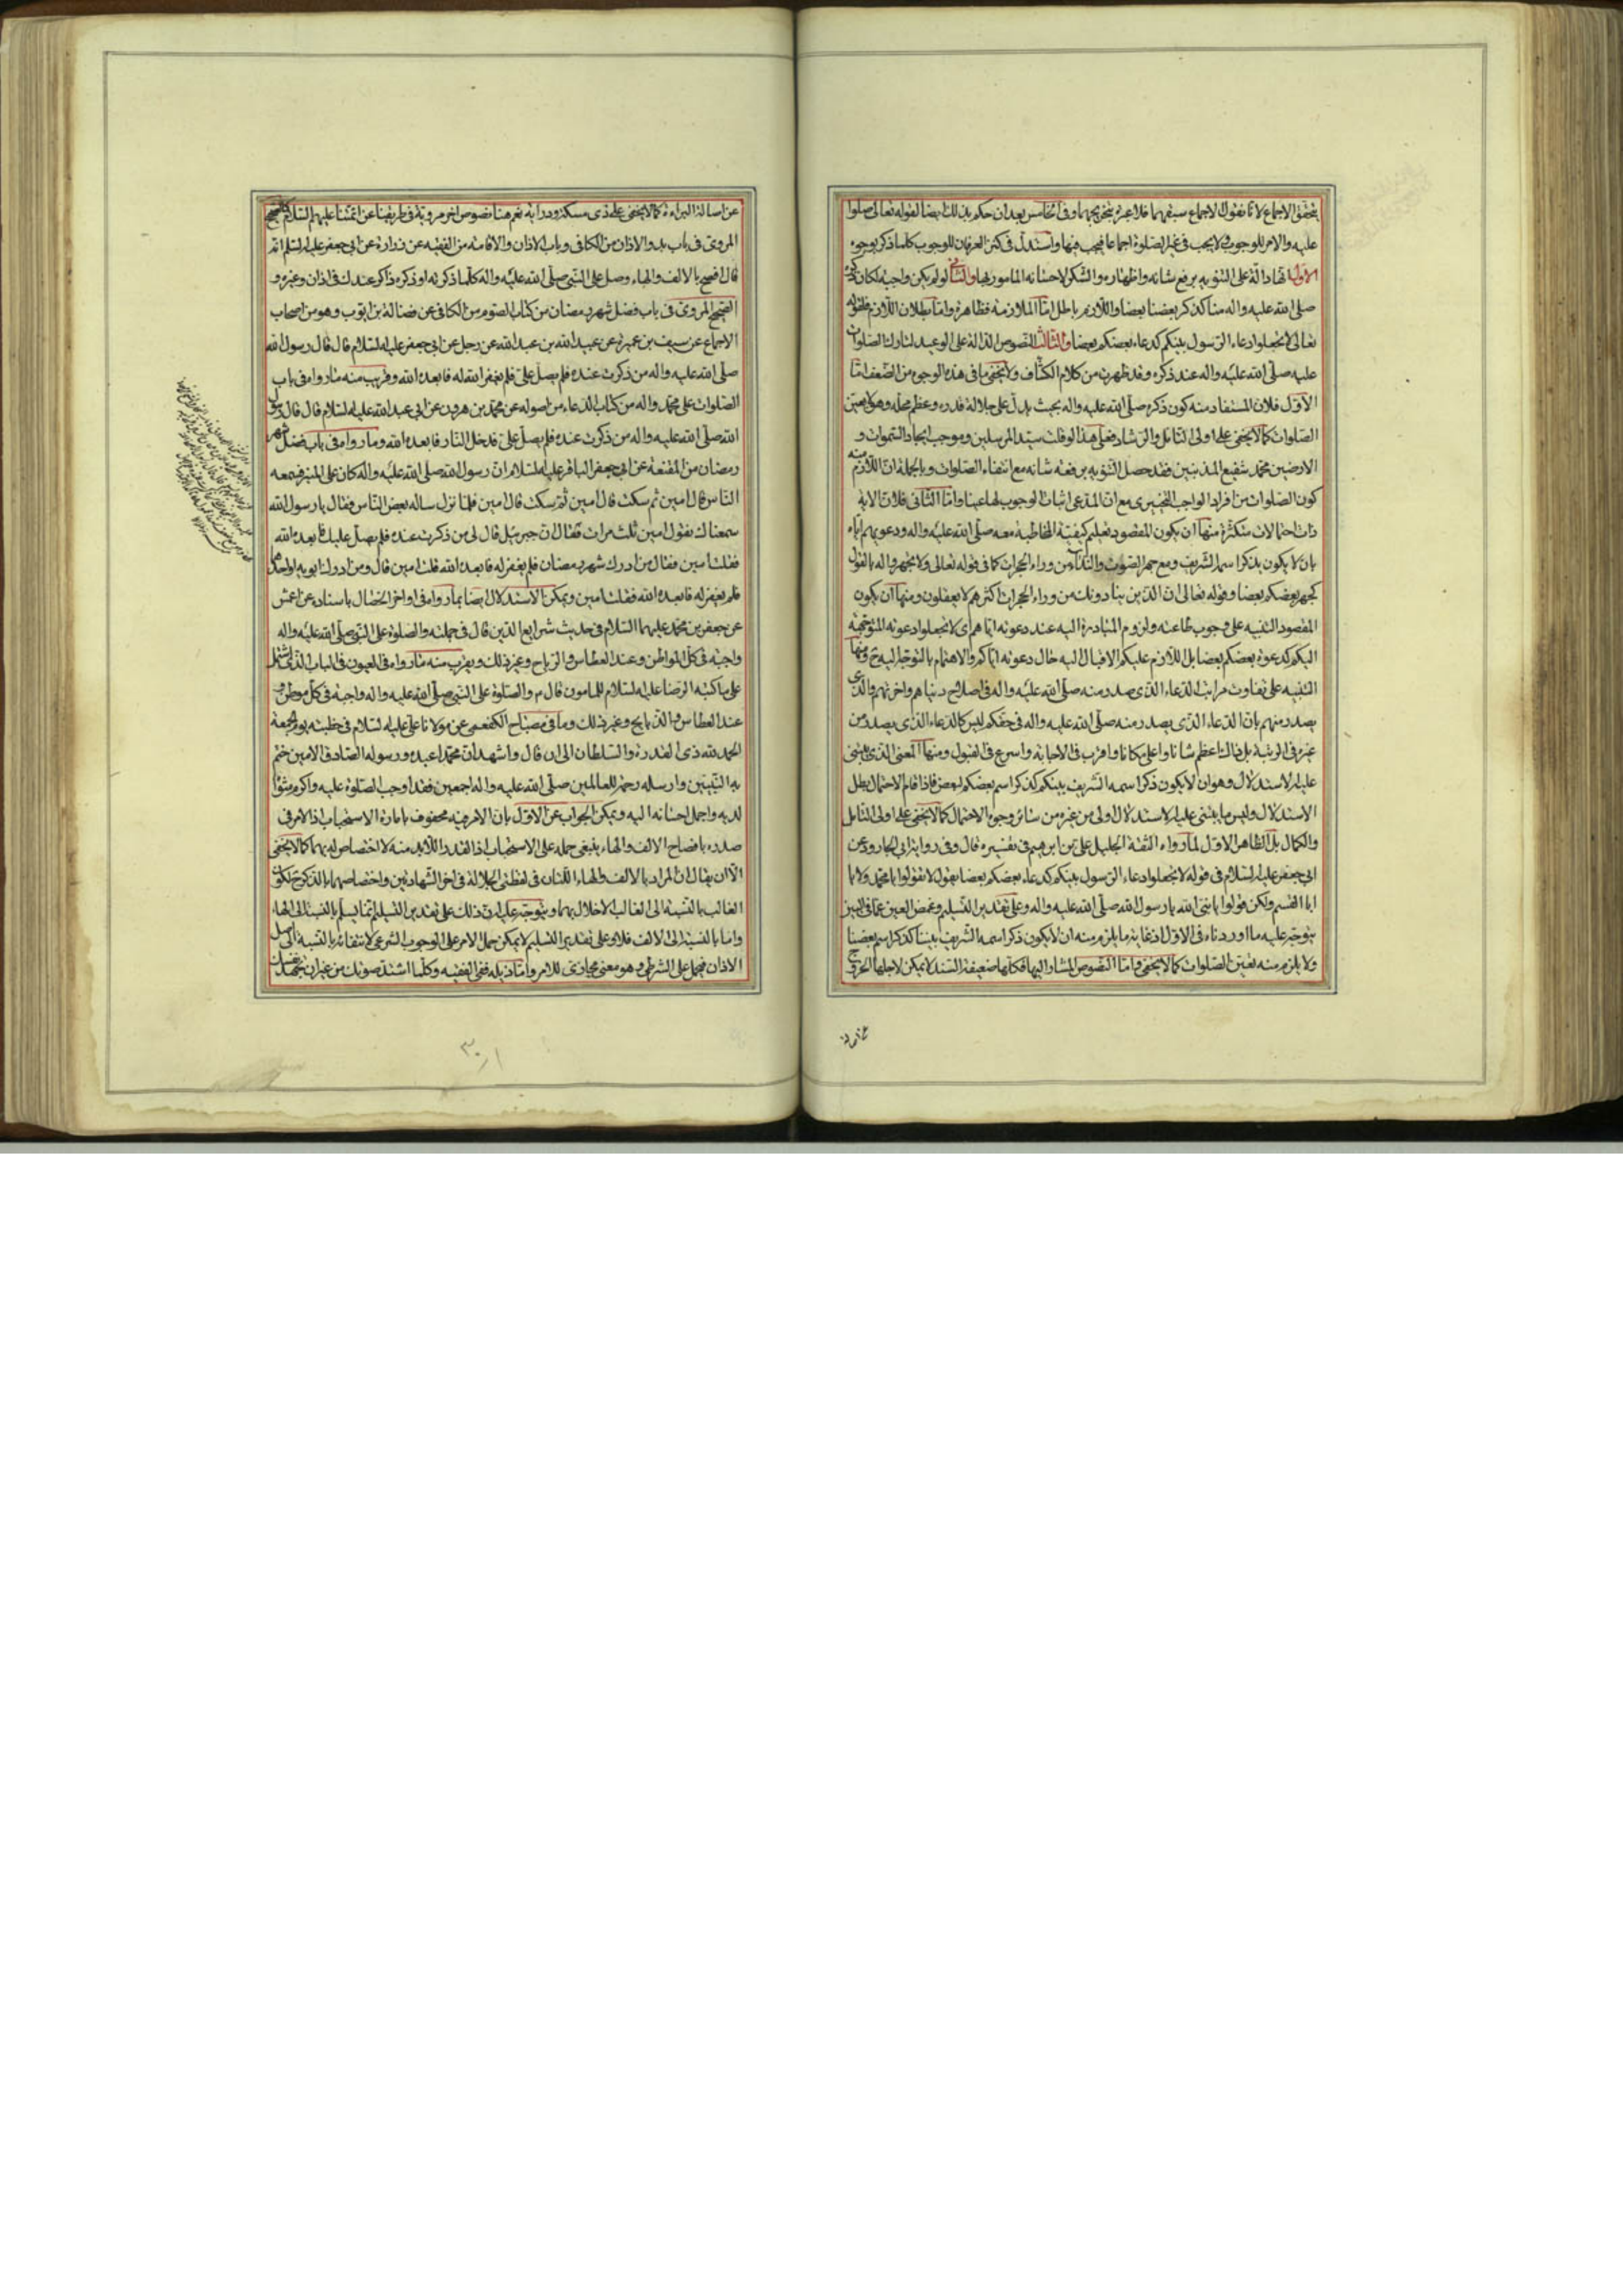 يتحقق الاجماع لانا نقول الاجماع سبقهما فلا عبرة بتخريجهما وفي الخامس بعد ان حكم بذلك ايضا لقوله تعالى صلوا
عليه والامر للوجوب ولا يجب في غير الصلوة اجماعا فيجب فيها واستدل في كنز العرفان للوجوب كلما ذكر بوجوه
الاول انها دالة على التنويه برفع شانه واظهار مو الشكر لاحسانه المامور بها والثاني لو لم يكن واجبة لكان
صلى الله عليه واله منا كذكر بعضنا بعضا واللازم باطل اما الملازمة فظاهرة واما بطلان اللازم فلقوله
تعالى لا تجعلوا دعاء الرسول بينكم كدعاء بعضكم بعضا والثالث النصوص الدالة على الوعيد لتارك الصلوات
عليه صلى الله عليه واله عند ذكره وقد ظهرت من كلام الكشاف ولا يخفى ما في هذه الوجوه من الضعف اما
الاول فلان المستفاد منه كون ذكره صلى الله عليه واله بحيث يدل على جلالة قدره وعظم محله وهو لا يعين
الصلوات كما لا يخفى على اولى التامل والرشاد فعلى هذا لو قلت سيد المرسلين وموجب ايجاد السموات و
الارضين محمد شفيع المذنبين فقد حصل التنويه برفعة شانه مع انتفاء الصلوات وبالجملة ان اللازم منه
كون الصلوات من افراد الواجب التخييري مع ان المدعى اثبات الوجوب لها عينا واما الثاني فلان الاية
ذات احتمالات متكثرة منها ان يكون المقصود تعليم كيفية المخاطبة معه صلى الله عليه واله ودعوتهم اياه
بان لا يكون بذكر اسمه الشريف ومع جهر الصوت والنداء من وراء الحجرات كما في قوله تعالى ولا تجهروا له بالقول
كجهر بعضكم بعضا وقوله تعالى ان الذين ينادونك من وراء الحجرات اكثرهم لا يعقلون ومنها ان يكون
المقصود التنبيه على وجوب طاعته ولزوم المبادرة اليه عند دعوته اياهم اى لا تجعلوا دعوته المتوجهة
اليكم كدعوة بعضكم بعضا بل اللازم عليكم الاقبال اليه حال دعوته اياكم والاهتمام بالتوجه اليه ومنها
التنبيه على تفاوت مراتب الدعاء الذى صدر منه صلى الله عليه واله في اصلاح دنياهم واخرتهم والذى
يصدر منهم بان الدعاء الذى يصدر منه صلى الله عليه واله في حقكم ليس كالدعاء الذى يصدر من
غيره في الرتبة بل ذلك اعظم شانا واعلى مكانا واقرب في الاجابة واسرع في القبول ومنها المعنى الذى يبتنى
عليه الاستدلال وهو ان لا يكون ذكر اسمه الشريف بينكم كذكر اسم بعضكم لبعض فاذا قام الاحتمال بطل
الاستدلال وليس ما يبتنى عليه الاستدلال اولى من غيره من سائر وجوه الاحتمال كما لا يخفى على اولى التامل
والكمال بل الظاهر الاول لما رواه الثقة الجليل على بن ابرهيم في تفسيره قال وفي رواية ابى الجارود عن
ابى جعفر عليه السلام في قوله لا تجعلوا دعاء الرسول بينكم كدعاء بعضكم بعضا يقول لا تقولوا يا محمد ولا يا
ابا القسم ولكن قولوا يا نبى الله يا رسول الله صلى الله عليه واله وعلى تقدير التسليم وغمض العين عما في البين
يتوجه عليه ما اوردناه في الاول اذ غاية ما يلزم منه ان لا يكون ذكر اسمه الشريف بيننا كذكر اسم بعضنا
ولا يلزم منه تعين الصلوات كما لا يخفى واما النصوص المشار اليها فكلها ضعيفة السند لا يمكن لاجلها الخروج
عن اصالة البراءة كما لا يخفى على ذى مسكة ودراية نعم هنا نصوص اخر مروية في طريقنا عن ائمتنا عليهم السلام كالصحيح
المروى في باب بدو الاذان من الكافي وباب الاذان والاقامة من الفقيه عن زرارة عن ابى جعفر عليه السلم انه
قال افصح بالالف والهاء وصل على النبى صلى الله عليه واله كلما ذكرته او ذكره ذاكر عندك في اذان وغيره و
الصحيح المروى في باب فضل شهر رمضان من كتاب الصوم من الكافي عن فضالة بن ايوب وهو من اصحاب
الاجماع عن سيف بن عميرة عن عبيد الله بن عبد الله عن رجل عن ابى جعفر عليه السلام قال قال رسول الله
صلى الله عليه واله من ذكرت عنده فلم يصل على فلم يغفر الله له فابعده الله وقريب منه ما رواه في باب
الصلوات على محمد واله من كتاب الدعاء من اصوله عن محمد بن هرون عن ابى عبد الله عليه السلام قال قال رسول
الله صلى الله عليه واله من ذكرت عنده فلم يصل على فدخل النار فابعده الله وما رواه في باب فضل شهر
رمضان من المقنعة عن ابى جعفر الباقر عليه السلام ان رسول الله صلى الله عليه واله كان على المنبر فسمعه
الناس قال امين ثم سكت قال امين ثم سكت قال امين فلما نزل ساله بعض الناس فقال يا رسول الله
سمعناك تقول امين ثلث مرات فقال ان جبرئيل قال لى من ذكرت عنده فلم يصل عليك فابعده الله
فقلت امين فقال من ادرك شهر رمضان فلم يغفر له فابعده الله قلت امين قال ومن ادرك ابويه او احدهما
فلم يغفر له فابعده الله فقلت امين ويمكن الاستدلال ايضا بما رواه في اواخر الخصال باسناده عن اعمش
عن جعفر بن محمد عليهما السلام في حديث شرايع الدين قال في جملته والصلوة على النبى صلى الله عليه واله
واجبة في كل المواطن وعند العطاس والرياح وغير ذلك ويقرب منه ما رواه في العيون في الباب الذى اشتمل
على ما كتبه الرضا عليه السلام للمامون قال م والصلوة على النبى صلى الله عليه واله واجبة في كل موطن و
عند العطاس والذبايح وغير ذلك وما في مصباح الكفعمى عن مولانا على عليه السلام في خطبته يوم الجمعة
الحمد لله ذى القدرة والسلطان الى ان قال واشهد ان محمدا عبده ورسوله الصادق الامين ختم
به النبيين وارسله رحمة للعالمين صلى الله عليه واله اجمعين فقد اوجب الصلوة عليه واكرم مثواه
لديه واجمل احسانه اليه ويمكن الجواب عن الاول بان الامر فيه محفوف بامارة الاستحباب اذ الامر في
صدره بافصاح الالف والهاء ينبغى حمله على الاستحباب اذ القدر اللابد منه لا اختصاص له بهما كما لا يخفى
الا ان يقال ان المراد بالالف والهاء اللتان في لفظتى الجلالة في اخر الشهادتين واختصاصهما بالذكر لكون
الغالب بالنسبة الى الغالب الاخلال بهما ويتوجه عليه ان ذلك على تقدير التسليم انما يسلم بالنسبة الى الهاء
واما بالنسبة الى الالف فلا وعلى تقدير التسليم لا يمكن حمل الامر على الوجوب الشرعى لانتفائه بالنسبة الى اصل
الاذان فيحمل على الشرطى وهو معنى مجازى للامر واما ذيله ففى الفقيه وكلما اشتد صوتك من غير ان تجهد نفسك